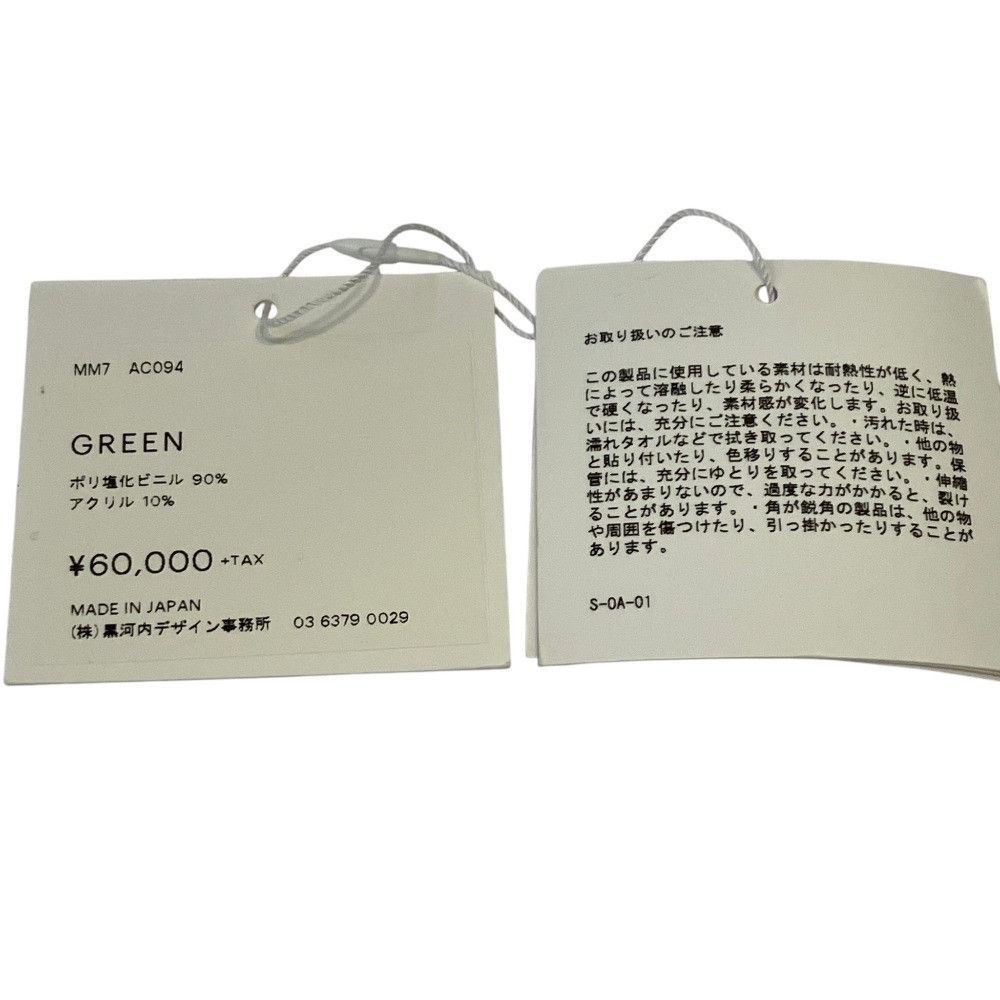 MM7 AC094
GREEN
ポリ塩化ビニル 90%
アクリル 10%
¥60,000 +TAX
MADE IN JAPAN
(株)黒河内デザイン事務所 03 6379 0029
お取り扱いのご注意
この製品に使用している素材は耐熱性が低く、熱
によって溶融したり柔らかくなったり、逆に低温
で硬くなったり、素材感が変化します。お取り扱
いには、充分にご注意ください。・汚れた時は、
濡れタオルなどで拭き取ってください。・他の物
と貼り付いたり、色移りすることがあります。保
管には、充分にゆとりを取ってください。・伸縮
性があまりないので、過度な力がかかると、裂け
ることがあります。・角が鋭角の製品は、他の物
や周囲を傷つけたり、引っ掛かったりすることが
あります。
S-OA-01